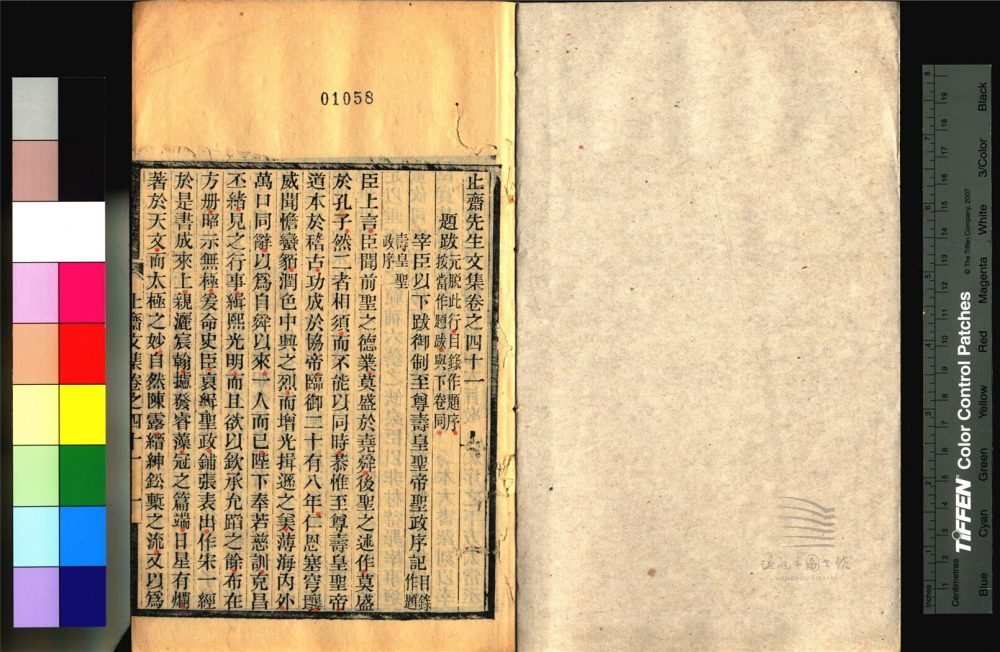 01058
止齋先生文集卷之四十一
題跋 元脫此行目錄作題序
按當作題跋與下卷同
宰臣以下跋御制至尊壽皇聖帝聖政序記 目錄作題
壽皇聖政序
臣上言臣聞前聖之德業莫盛於堯舜後聖之述作莫盛
於孔子然二者相須而不能以同時恭惟至尊壽皇聖帝
道本於稽古功成於協帝臨御二十有八年仁恩塞穹壤
威聞憺蠻貊潤色中興之烈而增光揖遜之美薄海內外
萬口同辭以爲自舜以來一人而已陛下奉若慈訓克昌
丕緒見之行事緝熙光明而且欲以欽承允蹈之餘布在
方册昭示無極爰命史臣裒輯聖政鋪張表出作宋一經
於是書成來上親灑宸翰攄發睿藻冠之篇端日星有爛
著於天文而太極之妙自然陳露縉紳鉛槧之流又以爲
止齋文集卷之四十一 一
溫州市圖書館
WENZHOU LIBRARY
TIFFEN Color Control Patches
© The Tiffen Company, 2007
Inches
Centimetres
Blue
Cyan
Green
Yellow
Red
Magenta
White
3/Color
Black